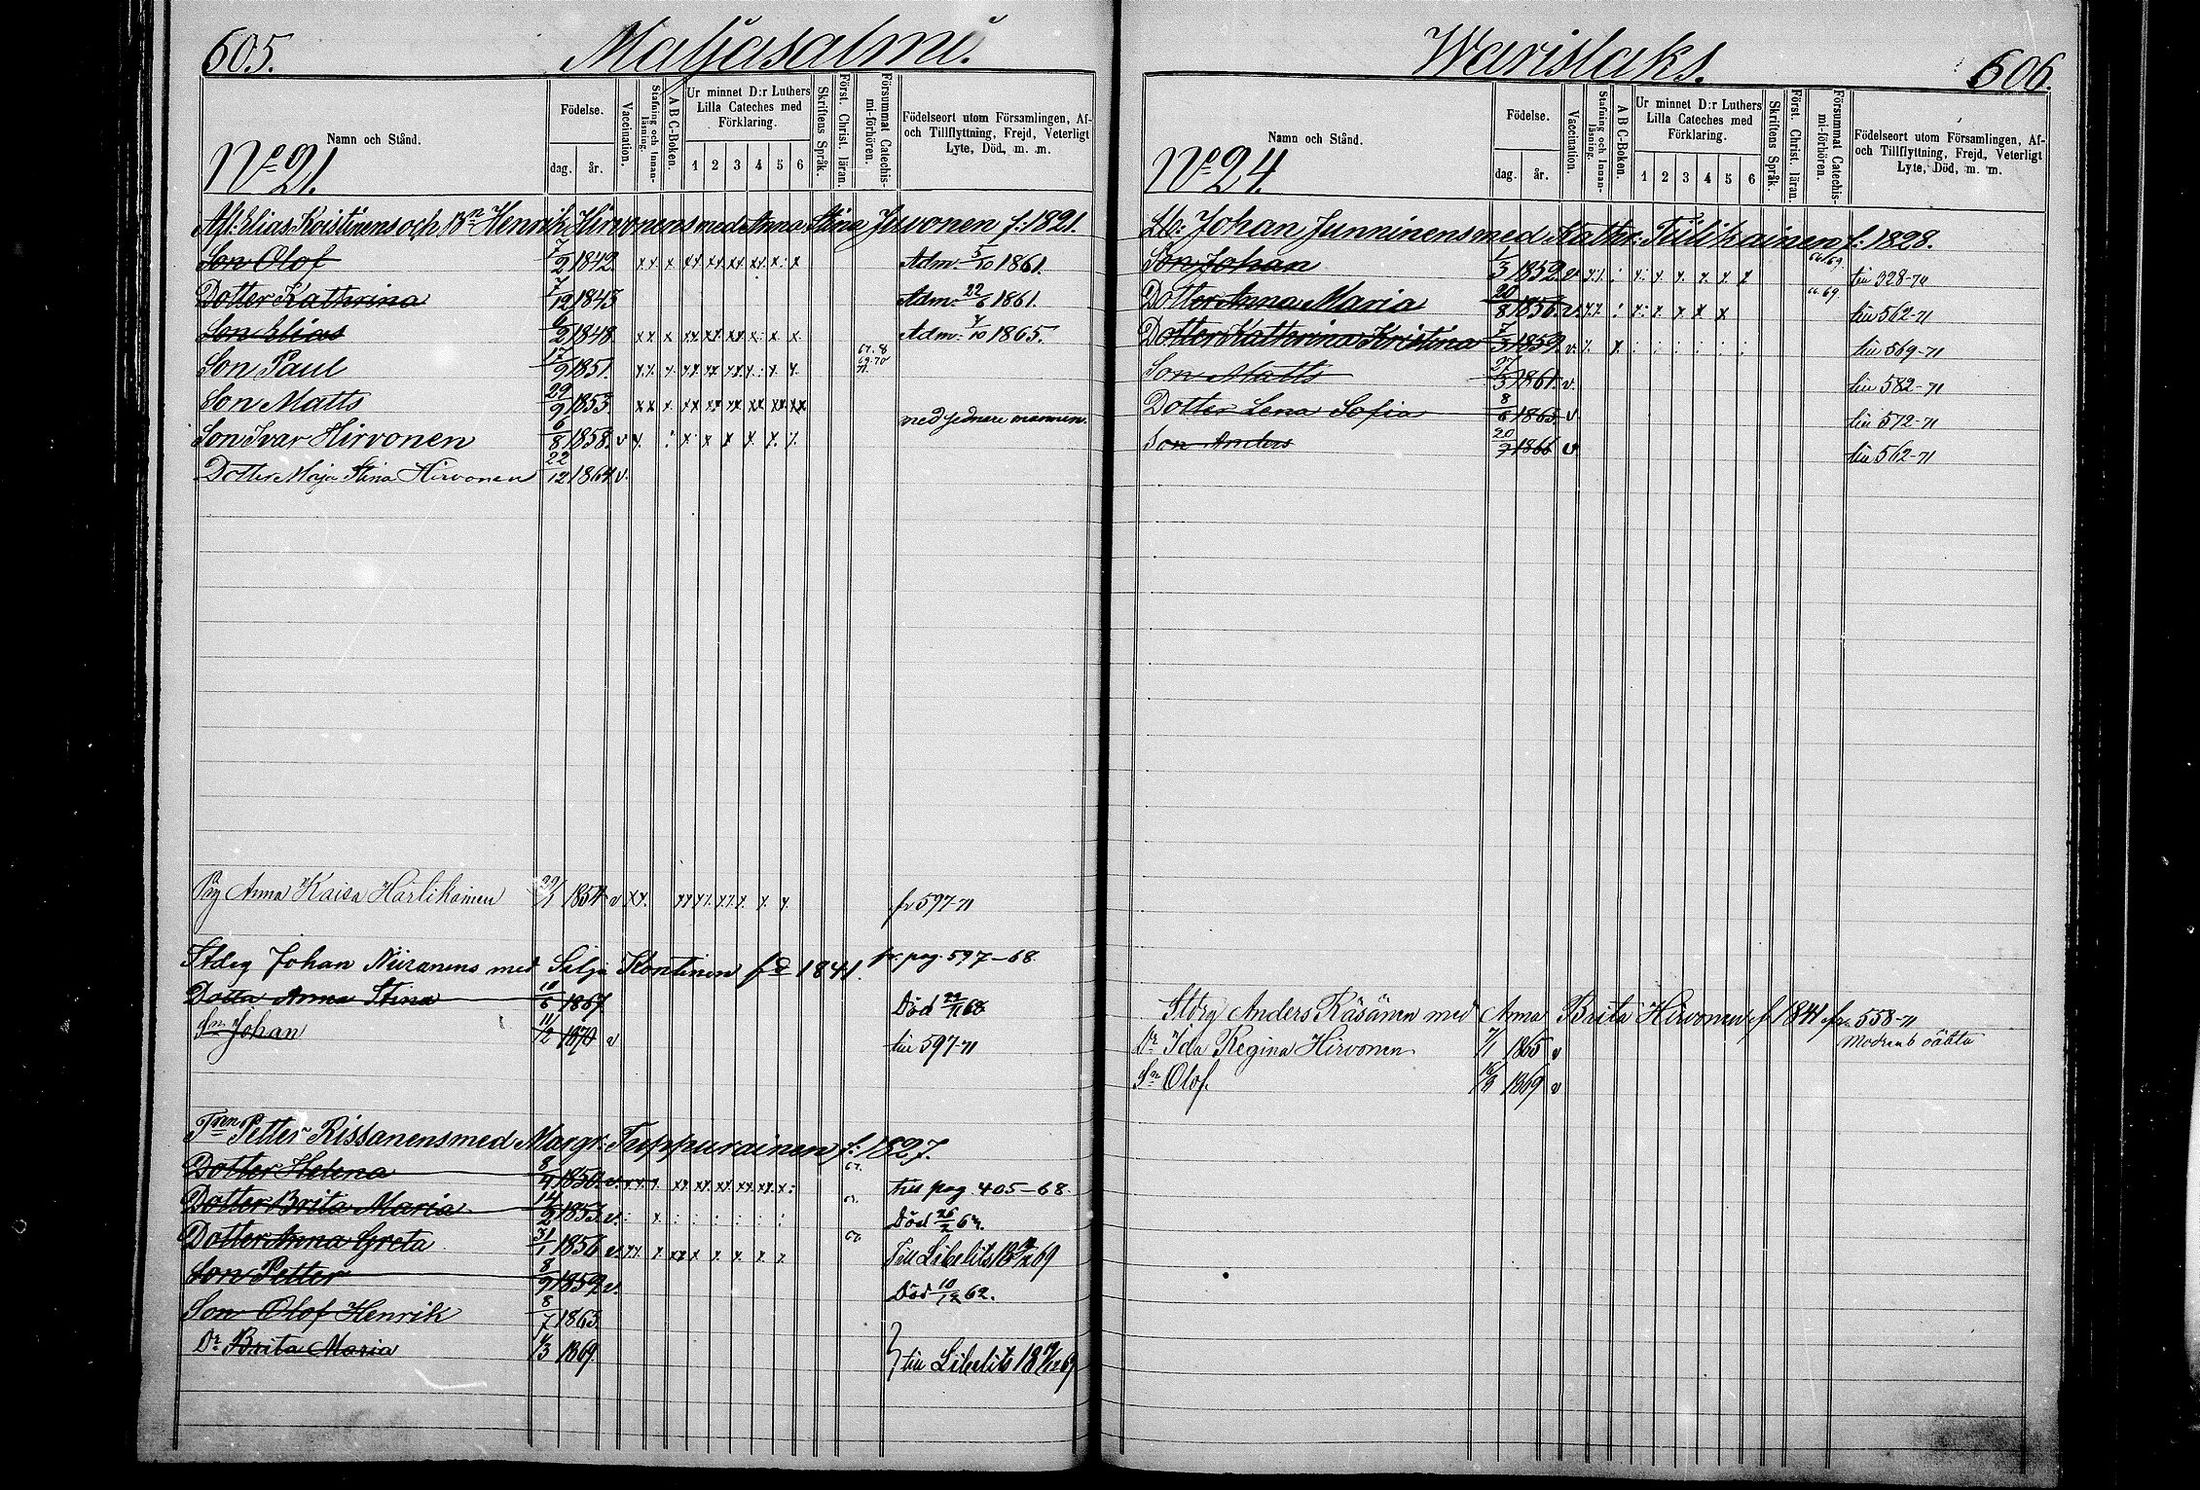 605. Maljasalmi.
Namn och Stånd.
Födelse.
dag. år.
Vaccination.
Stafning och Innan-läsning.
A B C-Boken.
Ur minnet D:r Luthers
Lilla Cateches med
Förklaring.
1 2 3 4 5 6
Skriftens Språk.
Först. Christ. läran.
Försummat Catechis-mi-förhören.
Födelseort utom Församlingen, Af-
och Tillflyttning, Frejd, Veterligt
Lyte, Död, m. m.
No 21.
Elias Koistinens och Henrik Hirvonens med Anna Stina Juvonen f: 1821.
Son Olof 7/2 1842 Adm. 5/10 1861.
Dotter Kathrina 7/12 1843 Adm. 22/6 1861.
Son Elias 6/2 1848 Adm. 7/10 1865.
Son Paul 17/9 1851.
Son Matts 29/9 1853.
med sednare mannen.
Son Ivar Hirvonen 6/8 1858. v
Dotter Maja Stina Hirvonen 22/12 1864 v.
Anna Kaisa 1854 v fr 597-71
Johan Niiranens med Silja Kontinen fd 1841. fr. pag. 597-68.
Anna Stina 10/6 1867 Död 68
Sn Johan 11/2 1870 v till 597-71
Petter Rissanens med Margr: Tuppurainen f: 1827.
Dotter Helena 8/4 1850. v. 67. till pag. 405-68.
Dotter Brita Maria 14/2 1853. v. Död 26/2
Dotter Anna Greta 31/1 1856 v. Till Libelits 69
Son Petter 8/9 1859. v. Död 10/12 62.
Son Olof Henrik 8/7 1863.
Dr Brita Maria 1869. till Libelits
Warislaks. 606.
Namn och Stånd.
Födelse.
dag. år.
Vaccination.
Stafning och Innan-läsning.
A B C-Boken.
Ur minnet D:r Luthers
Lilla Cateches med
Förklaring.
1 2 3 4 5 6
Skriftens Språk.
Först. Christ. läran.
Försummat Catechis-mi-förhören.
Födelseort utom Församlingen, Af-
och Tillflyttning, Frejd, Veterligt
Lyte, Död, m. m.
No 24.
Johan Junninens med Kathr: Tiilikainen f: 1828.
Son Johan 1/3 1852 v. till 328-70
Dotter Anna Maria 20/8 1856. v. 69. till 562-71
Dotter Katherina Kristina 7/3 1859. v. till 569-71
Son Matts 27/3 1861. v. till 582-71
Dotter Lena Sofia 8/6 1865. v till 572-71
Son Anders 20/9 1866 v till 562-71
Anders Räsänen med Anna Brita Hirvonen f. 1841 fr. 558-71
Dr Ida Regina Hirvonen 1865 v Modrens oäkta
Sn Olof. 1869 v